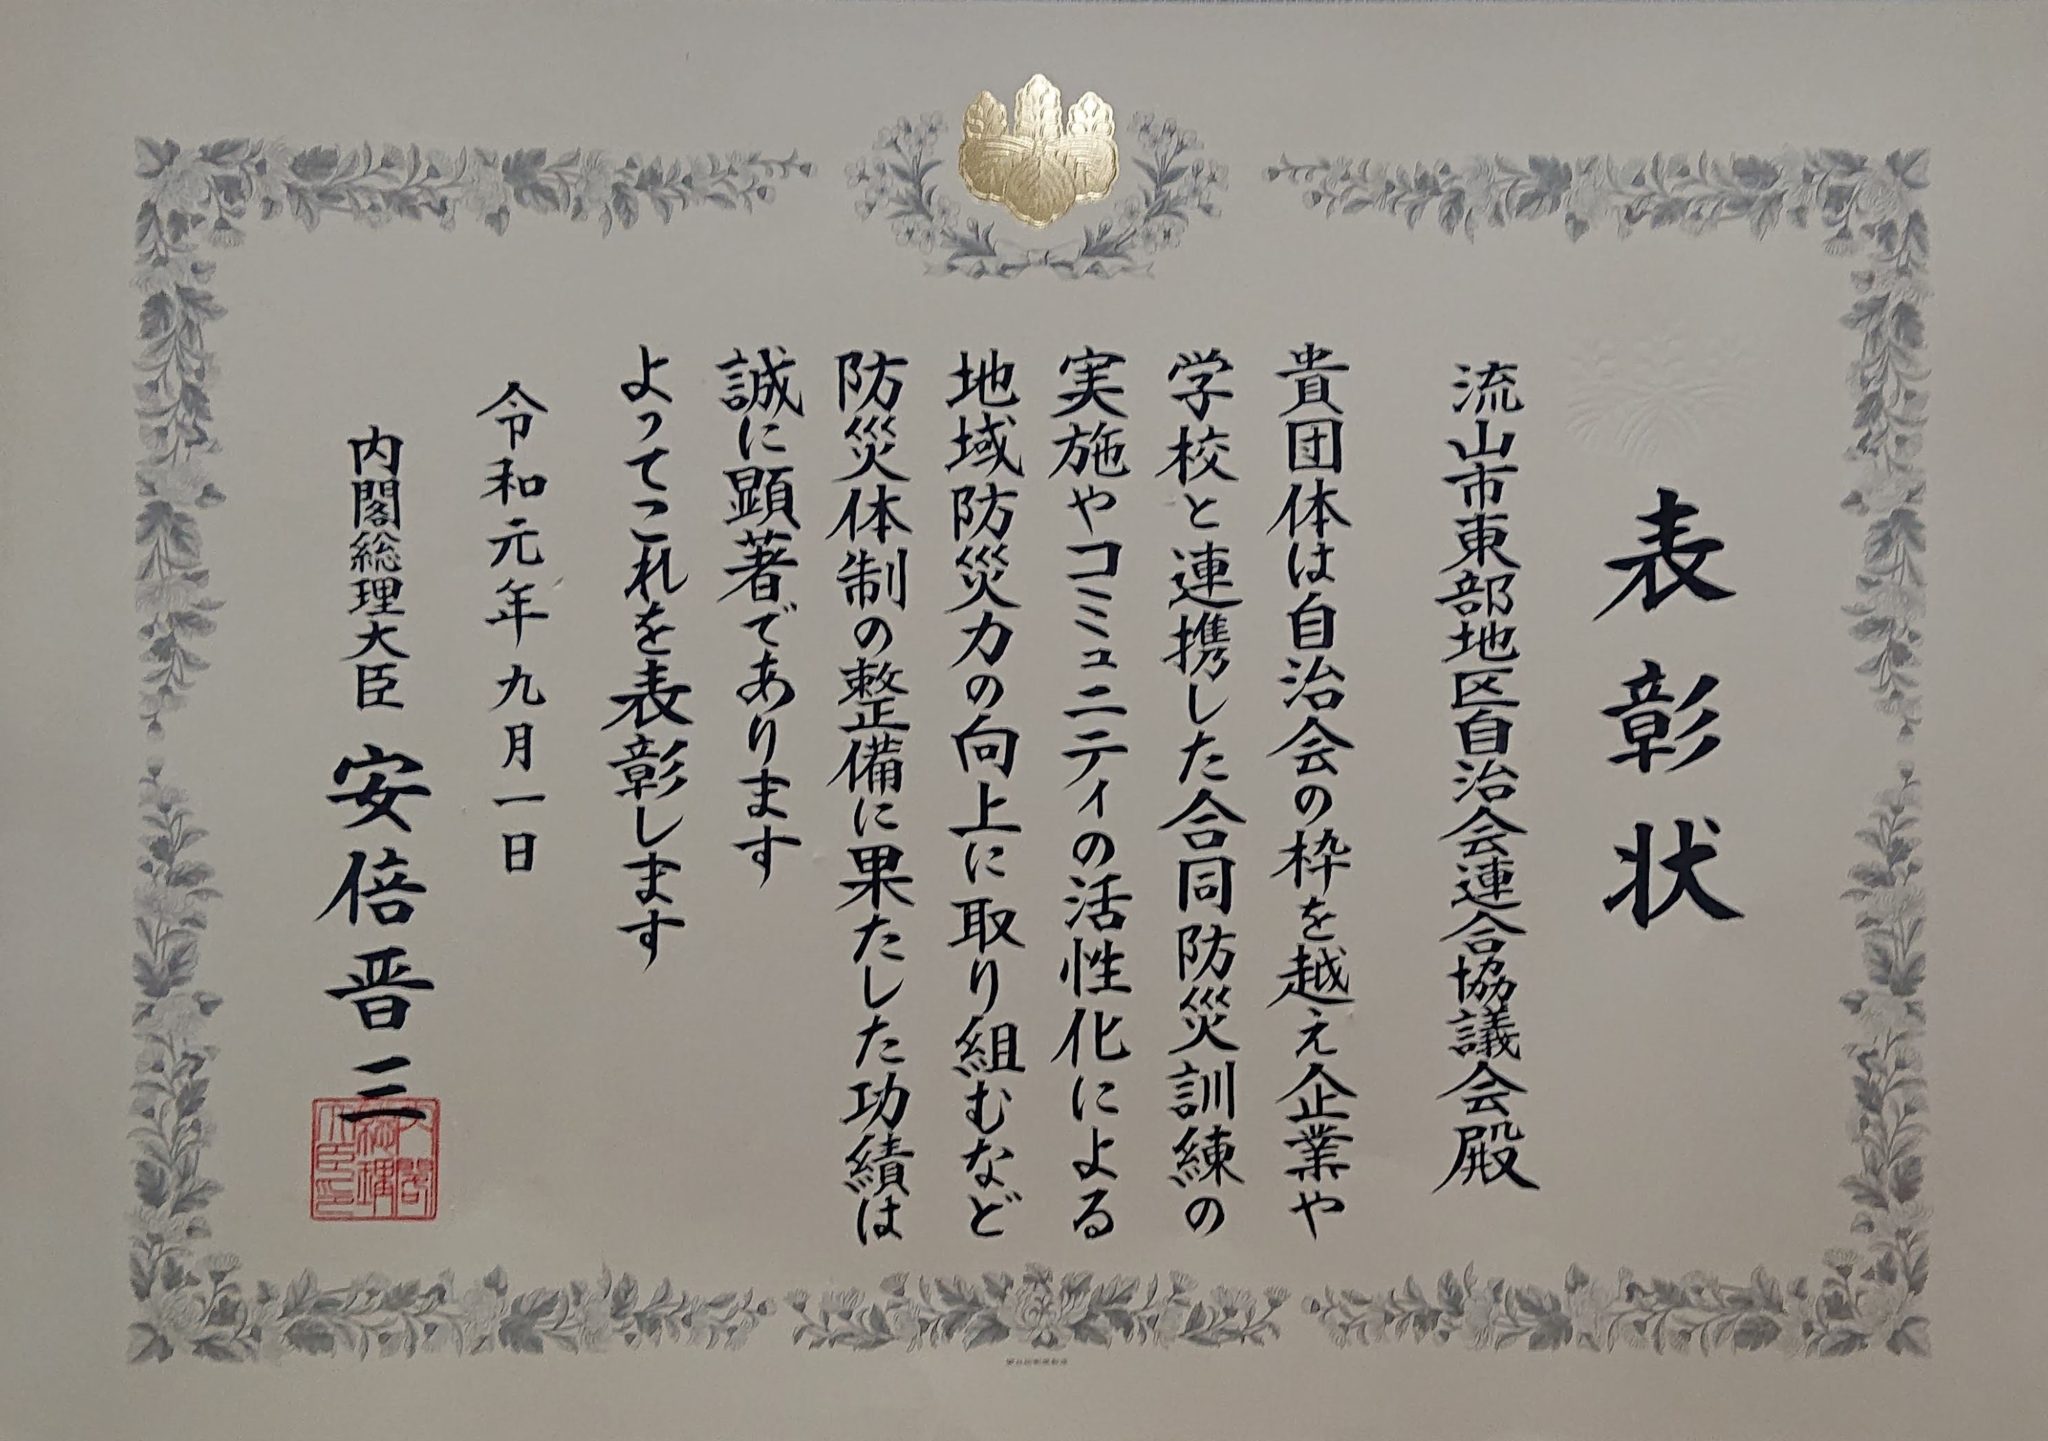 表彰状
流山市東部地区自治会連合協議会殿
貴団体は自治会の枠を越え企業や
学校と連携した合同防災訓練の
実施やコミュニティの活性化による
地域防災力の向上に取り組むなど
防災体制の整備に果たした功績は
誠に顕著であります
よってこれを表彰します
令和元年九月一日
内閣総理大臣 安倍晋三
内閣
総理
大臣印